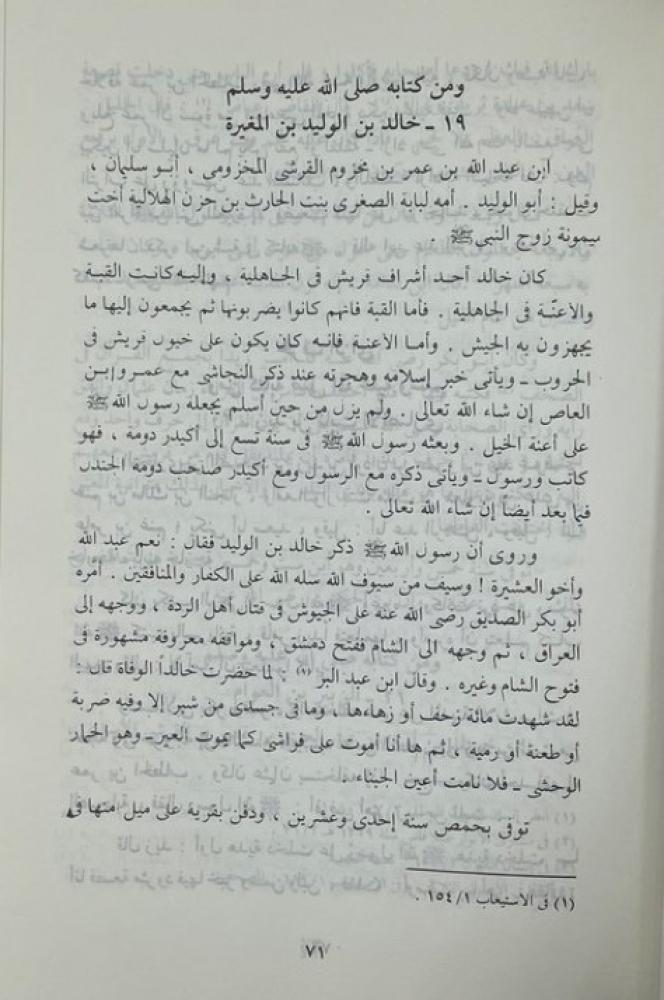 ومن كتابه صلى الله عليه وسلم
١٩ ـ خالد بن الوليد بن المغيرة
ابن عبد الله بن عمر بن مخزوم القرشي المخزومى ، أبو سليمان ،
وقيل : أبو الوليد . أمه لبابة الصغرى بنت الحارث بن حزن الهلالية أخت
ميمونة زوج النبي ﷺ .
كان خالد أحد أشراف قريش فى الجاهلية ، وإليه كانت القبة
والأعنّة فى الجاهلية . فأما القبة فانهم كانوا يضربونها ثم يجمعون إليها ما
يجهزون به الجيش . وأما الأعنة فانه كان يكون على خيول قريش فى
الحروب ـ ويأتى خبر إسلامه وهجرته عند ذكر النجاشى مع عمرو ابن
العاص إن شاء الله تعالى . ولم يزل من حين أسلم يجعله رسول الله ﷺ
على أعنة الخيل . وبعثه رسول الله ﷺ فى سنة تسع إلى أكيدر دومه ، فهو
كاتب ورسول ـ ويأتى ذكره مع الرسول ومع أكيدر صاحب دومه الجندل
فيما بعد أيضاً إن شاء الله تعالى .
وروى أن رسول الله ﷺ ذكر خالد بن الوليد فقال : نعم عبد الله
وأخو العشيرة ! وسيف من سيوف الله سله الله على الكفار والمنافقين . أمّره
أبو بكر الصديق رضى الله عنه على الجيوش فى قتال أهل الردة ، ووجهه إلى
العراق ، ثم وجهه الى الشام ففتح دمشق ، ومواقفه معروفة مشهورة فى
فتوح الشام وغيره . وقال ابن عبد البر (١) : لما حضرت خالداً الوفاة قال :
لقد شهدت مائة زحف أو زهاءها ، وما فى جسدى من شبر إلا وفيه ضربة
أو طعنة أو رمية ، ثم ها أنا أموت على فراشى كما يموت العير ـ وهو الحمار
الوحشى ـ فلا نامت أعين الجبناء .
توفى بحمص سنة إحدى وعشرين ، ودفن بقرية على ميل منها فى
(١) فى الأستيعاب ١/ ١٥٤ .
٧١